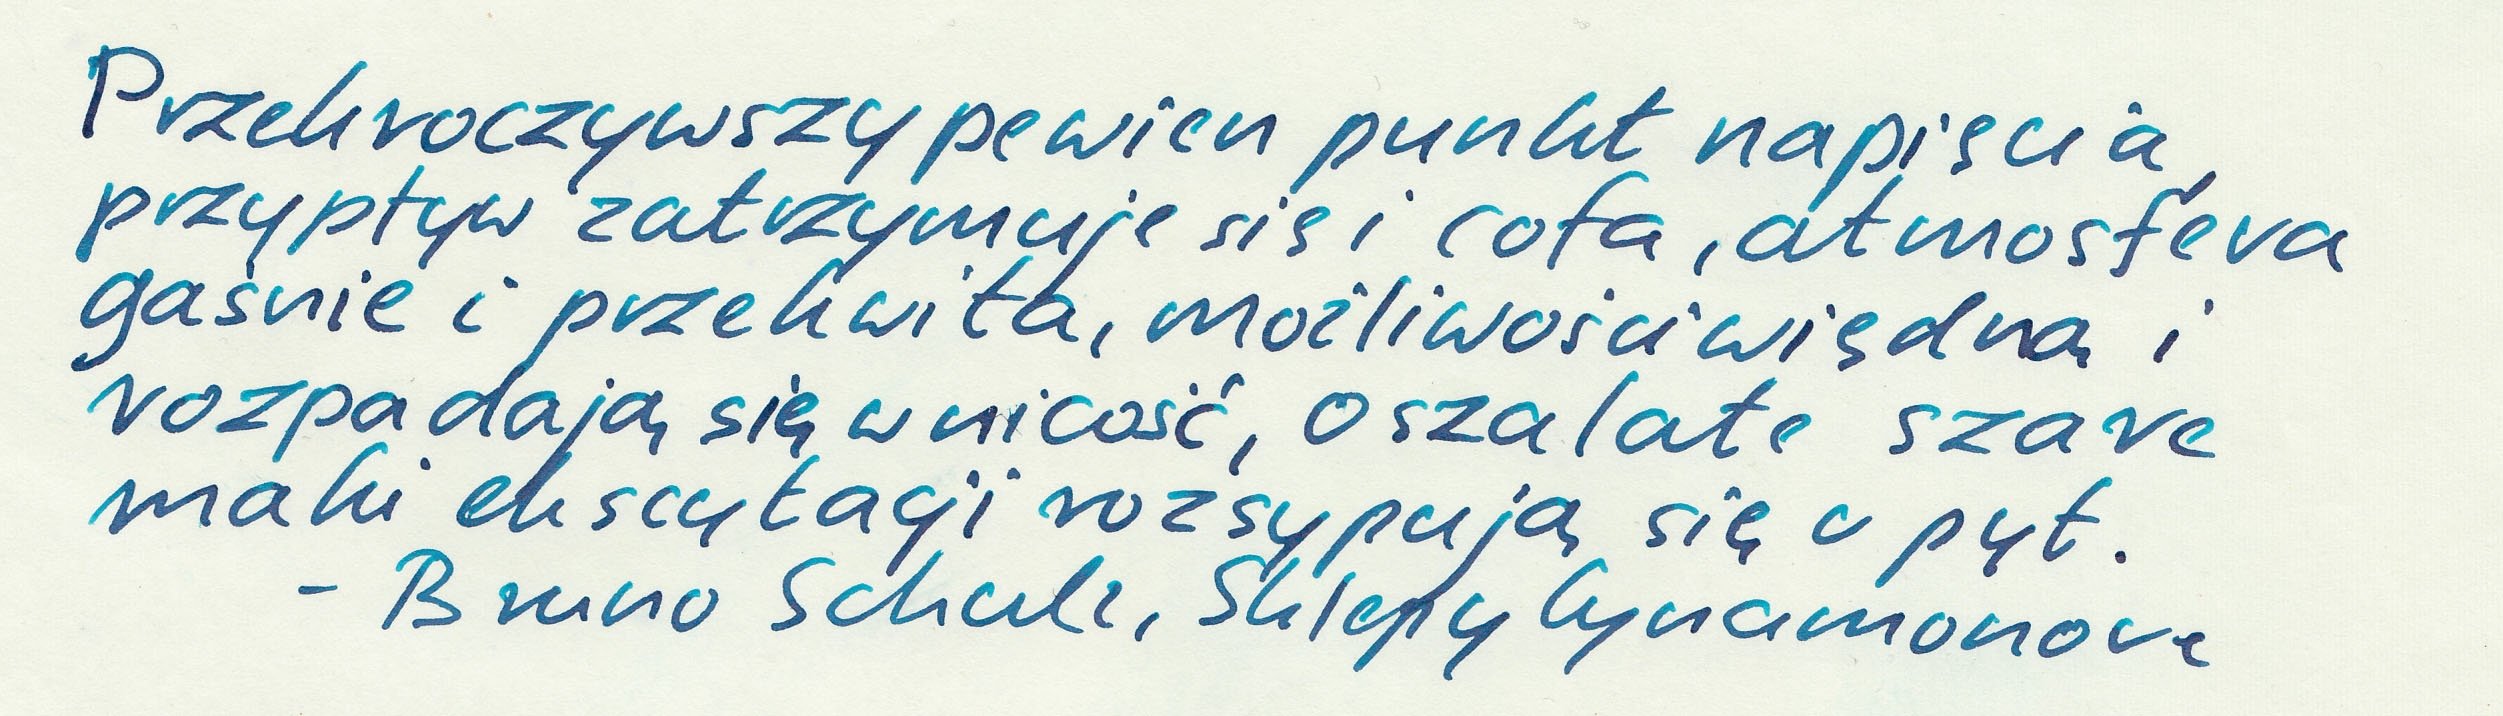 Przekroczywszy pewien punkt napięcia
przypływ zatrzymuje się i cofa, atmosfera
gaśnie i przekwita, możliwości więdną i
rozpadają się w nicość, oszalałe szare
maki ekscytacji rozsypują się w pył.
- Bruno Schulz, Sklepy Cynamonowe